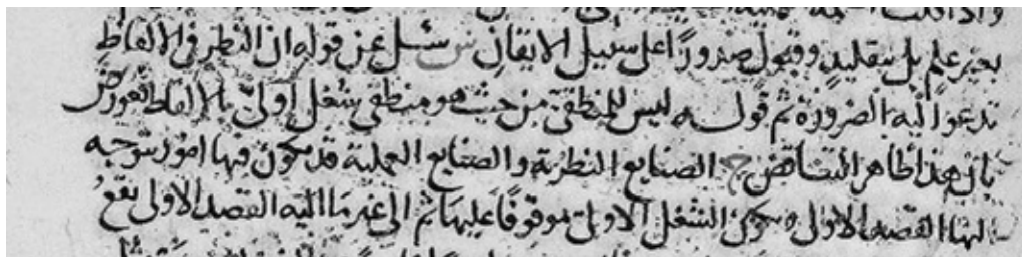 بغير علم بل بتقليد وقبول صدورًا على سبيل الايقان س سئل عن قوله ان النظر في الالفاظ
تدعوا اليه الضرورة ثم قوله ليس للمنطقي من حيث هو منطقي شغل اولى بالالفاظ فعورض
بان هذا ظاهر التناقض ج الصنايع النظرية والصنايع العملية قد يكون فيها امور يتوجه
اليها القصد الاول ويكون الشغل الاول موقوفًا عليها ثم الى غير ما اليه القصد الاول يقع